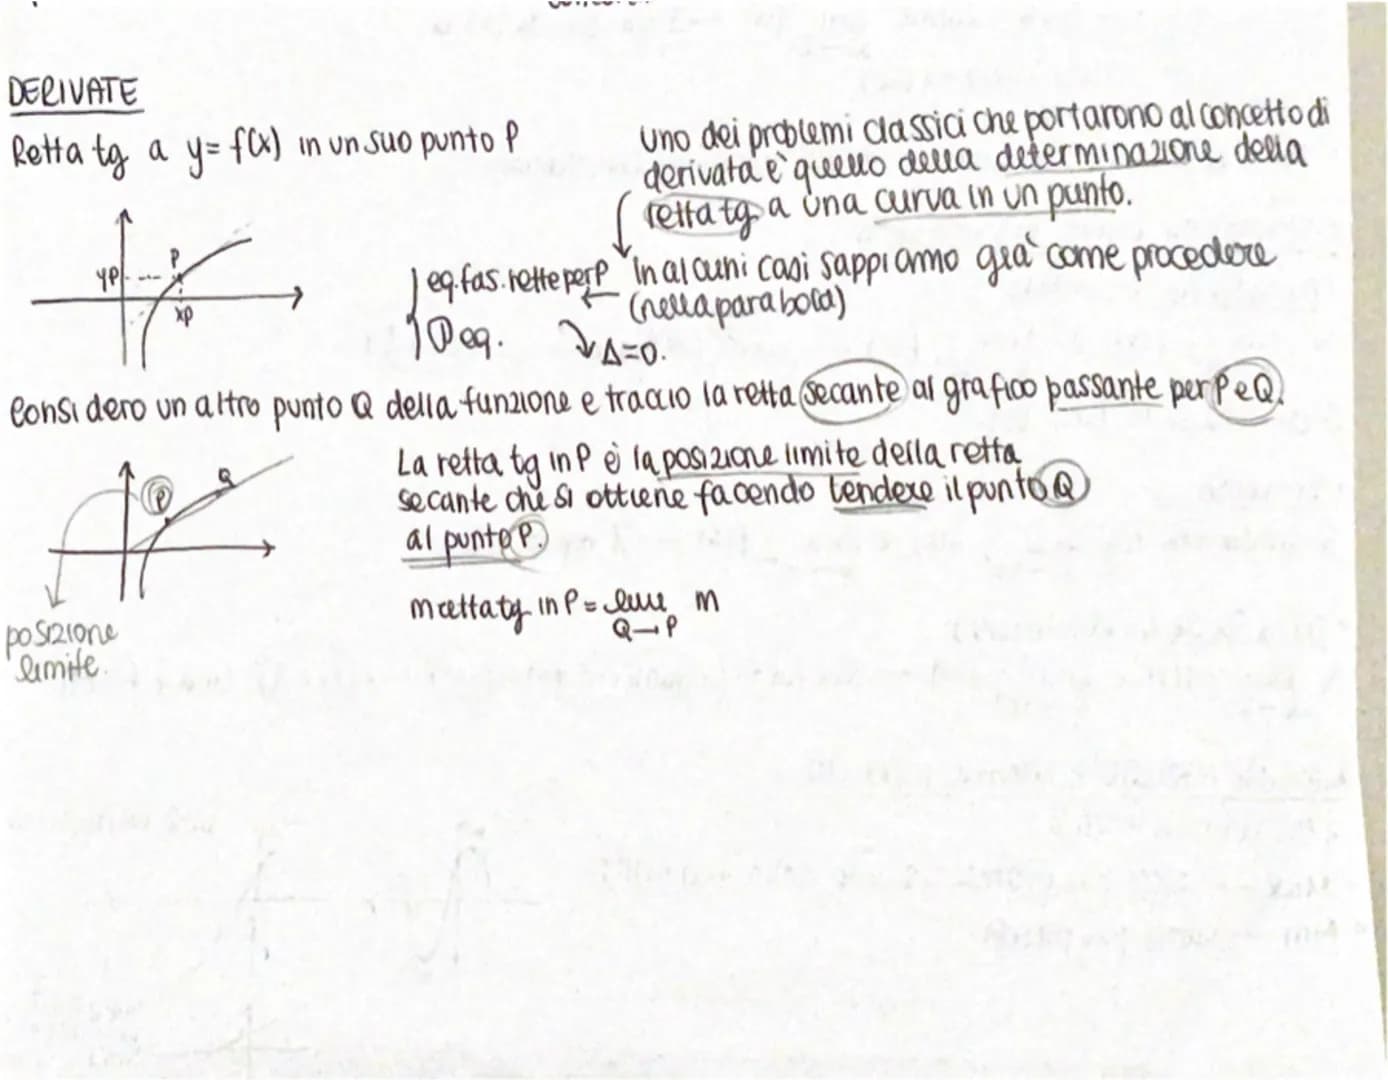 DERIVATE
Retta tg a y = f(x) in un suo punto P
Uno dei problemi classici che portarono al concetto di
derivata è quello della determinazione della
retta tg a una curva in un punto.
In alcuni casi sappiamo già come procedere
(nella parabola)
eq. fas. rette per P
eq.
Δ=0.
yP
P
xP
Considero un altro punto Q della funzione e traccio la retta secante al grafico passante per P e Q.
P
Q
posizione
limite.
La retta tg in P è la posizione limite della retta
secante che si ottiene facendo tendere il punto Q
al punto P.
m retta tg in P = lim m
Q→P